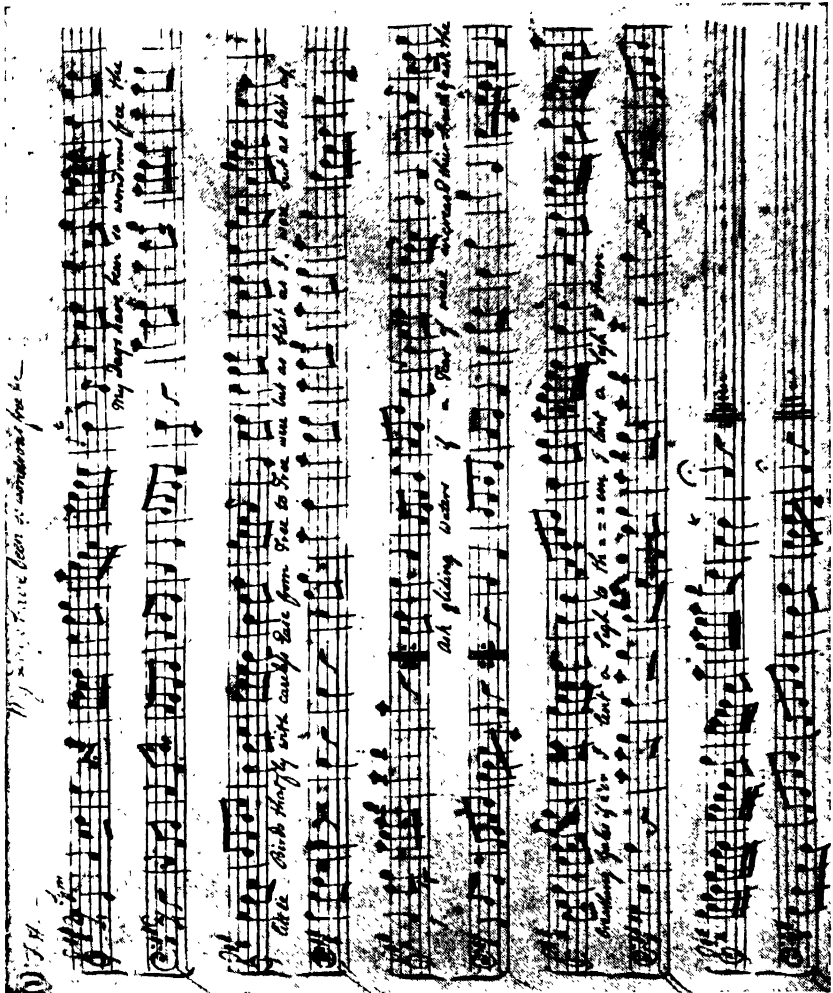 My days have been so wondrous free
(1) F.H. -
My days have been so wondrous free the
little Birds that fly with careless Ease from Tree to Tree were but as blest as I. were but as blest as I.
Ask gliding Waters if a Tear of mine increased their Stream & ask the
breathing gales if e'er I lent a Sigh to th===em I lent a Sigh to them.